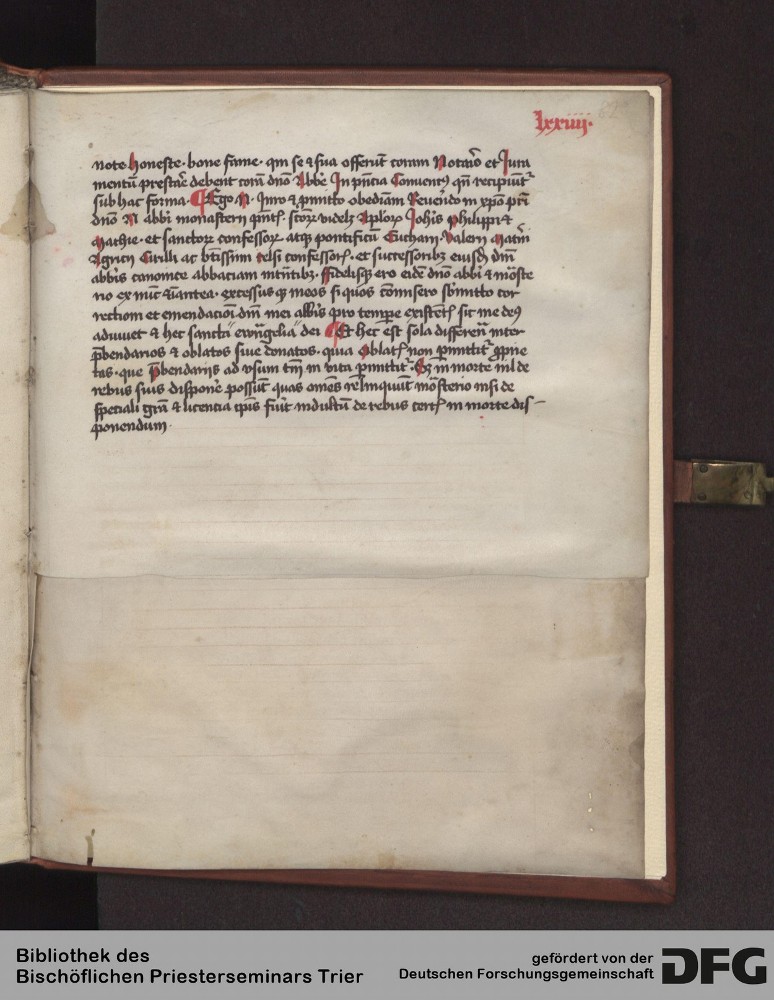 lxxiiij.
note honeste · bone fame · qui se & sua offerūt coram Notario et Jura
mentū prestare debent corā dn̄o Abbe In pn̄cia Conuentꝰ qn̄ recipiūt᷑
sub hac forma · Ego · N · Juro & ꝓmitto obediam Reuerēdo in xp̄o pr̄i
dn̄o N abbi monasterij sctoꝝ videlꝫ Apl̓oꝝ Joh̓is philippi &
Mathie · et sanctoꝝ confessoꝝ atqꝫ pontificū Eucharij · Valerij Mat̓ni
Agricij Cirilli ac btissimi celsi confessoꝝ · et successoribꝫ eiusdē dn̄i
abbis canonice abbaciam int̄ntibꝫ · ffidelisqꝫ ero eidē dn̄o abbi & mōste
rio ex nūc & inantea · excessus qꝫ meos si quos cōmisero sb̓mitto cor
rectioni et emendacioī dn̄i mei abbis ꝓ tempe existēt sic me deꝰ
adiuuet & hec sancta ewāgelia dei Et hec est sola differen̄ inter
p̄bendarios & oblatos siue donatos · quia Oblatꝭ non ꝑmittit᷑ ꝓprie
tas · que p̄bendarijs ad vsum tm̄ in vita ꝑmittit᷑ · Sꝫ in morte nil de
rebus suis dispone᷑ possūt quas om̄es relinquūt mōsterio nisi de
speciali grā & licencia ip̄is fiūt indultū de rebus certꝭ in morte dis-
ponendum ·
Bibliothek des
Bischöflichen Priesterseminars Trier
gefördert von der
Deutschen Forschungsgemeinschaft
DFG